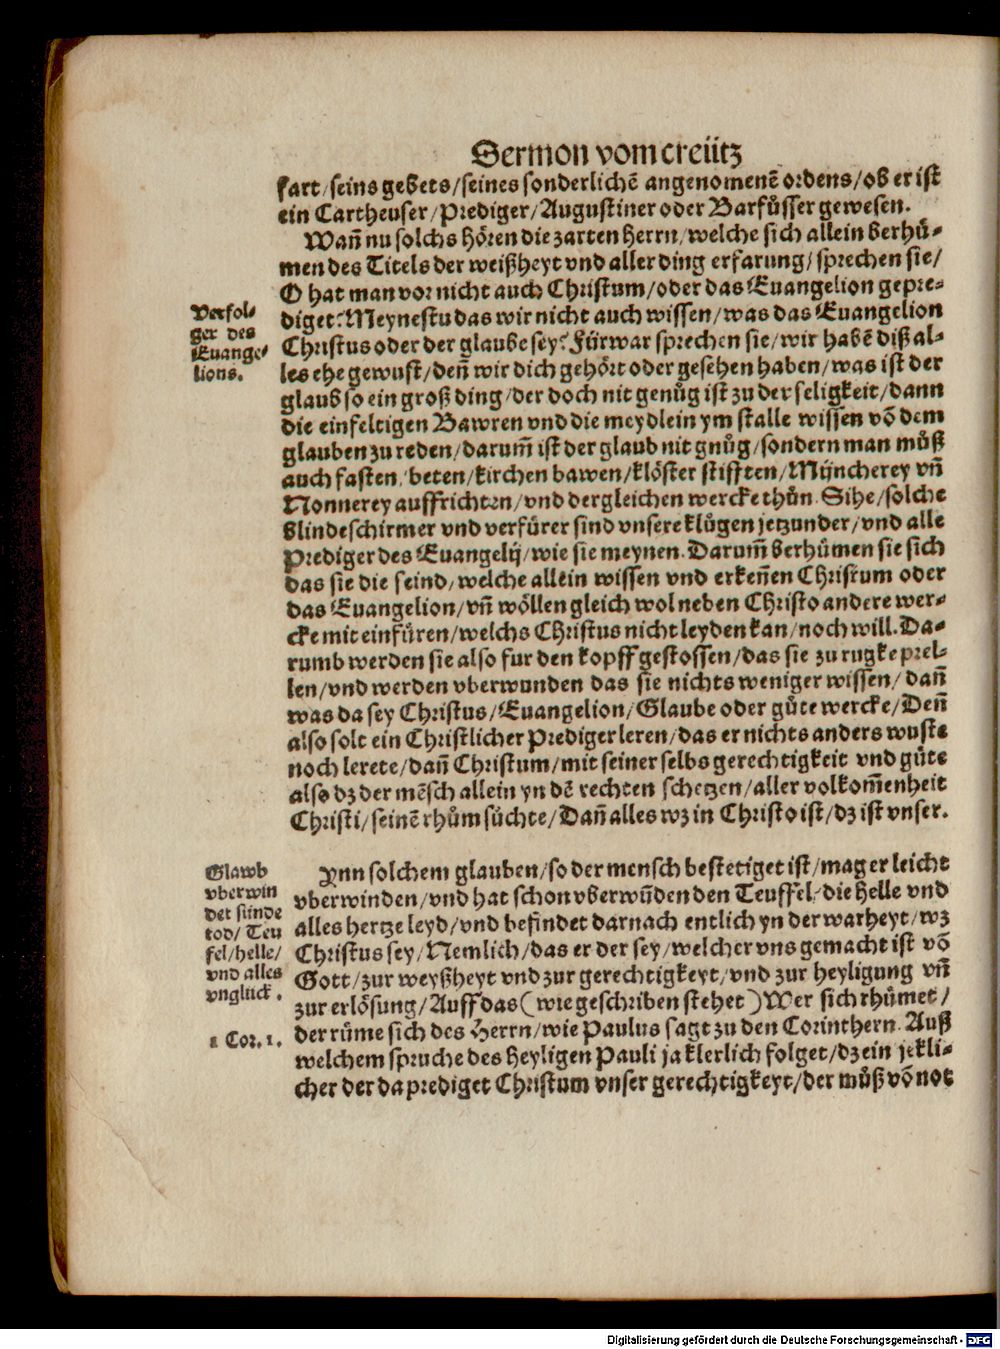 Sermon vom creütz
fart/seins gebets/seines sonderlichē angenomenē ordens/ob er ist
ein Cartheuser/Prediger/Augustiner oder Barfůsser gewesen.
Wañ nu solchs hören die zarten herrn/welche sich allein berhů-
men des Titels der weißheyt vnd aller ding erfarung/sprechen sie/
O hat man vor nicht auch Christum/oder das Euangelion gepre-
diget? Meynestu das wir nicht auch wissen/was das Euangelion
Christus oder der glaube sey? Fürwar sprechen sie/wir habē diß al-
les ehe gewust/deñ wir dich gehört oder gesehen haben/was ist der
glaub so ein groß ding/der doch nit genůg ist zu der seligkeit/dann
die einfeltigen Bawren vnd die meydlein ym stalle wissen vō dem
glauben zu reden/darum̄ ist der glaub nit gnůg/sondern man můß
auch fasten/beten/kirchen bawen/klöster stifften/Mÿncherey vñ
Nonnerey auffrichten/vnd dergleichen wercke thůn. Sihe/solche
blindeschirmer vnd verfürer sind vnsere klůgen jetzunder/vnd alle
Prediger des Euangelij/wie sie meynen. Darum̄ berhůmen sie sich
das sie die seind/welche allein wissen vnd erkeñen Christum oder
das Euangelion/vñ wöllen gleich wol neben Christo andere wer-
cke mit einfüren/welchs Christus nicht leyden kan/noch will. Da-
rumb werden sie also fur den kopff gestossen/das sie zu rugke prel-
len/vnd werden vberwunden das sie nichts weniger wissen/dañ
was da sey Christus/Euangelion/Glaube oder gůte wercke/Deñ
also solt ein Christlicher Prediger leren/das er nichts anders wuste
noch lerete/dañ Christum/mit seiner selbs gerechtigkeit vnd gůte
also dz der mēsch allein yn dē rechten schetzen/aller volkom̄enheit
Christi/seinē rhům sůchte/Dañ alles wz in Christo ist/dz ist vnser.
Ynn solchem glauben/so der mensch bestetiget ist/mag er leicht
vberwinden/vnd hat schon vberwūden den Teuffel/die helle vnd
alles hertze leyd/vnd befindet darnach entlich yn der warheyt/wz
Christus sey/Nemlich/das er der sey/welcher vns gemacht ist vō
Gott/zur weyßheyt vnd zur gerechtigkeyt/vnd zur heyligung vñ
zur erlösung/Auff das (wie geschriben stehet) Wer sich rhůmet/
der rüme sich des Herrn/wie Paulus sagt zu den Corinthern. Auß
welchem spruche des heyligen Pauli ja klerlich folget/dz ein jekli-
cher der da prediget Christum vnser gerechtigkeyt/der můß vō not
Verfol-
ger des
Euange-
lions.
Glawb
vberwin
det sünde
tod/Teu
fel/helle/
vnd alles
vnglück.
1 Cor. 1.
Digitalisierung gefördert durch die Deutsche Forschungsgemeinschaft - DFG